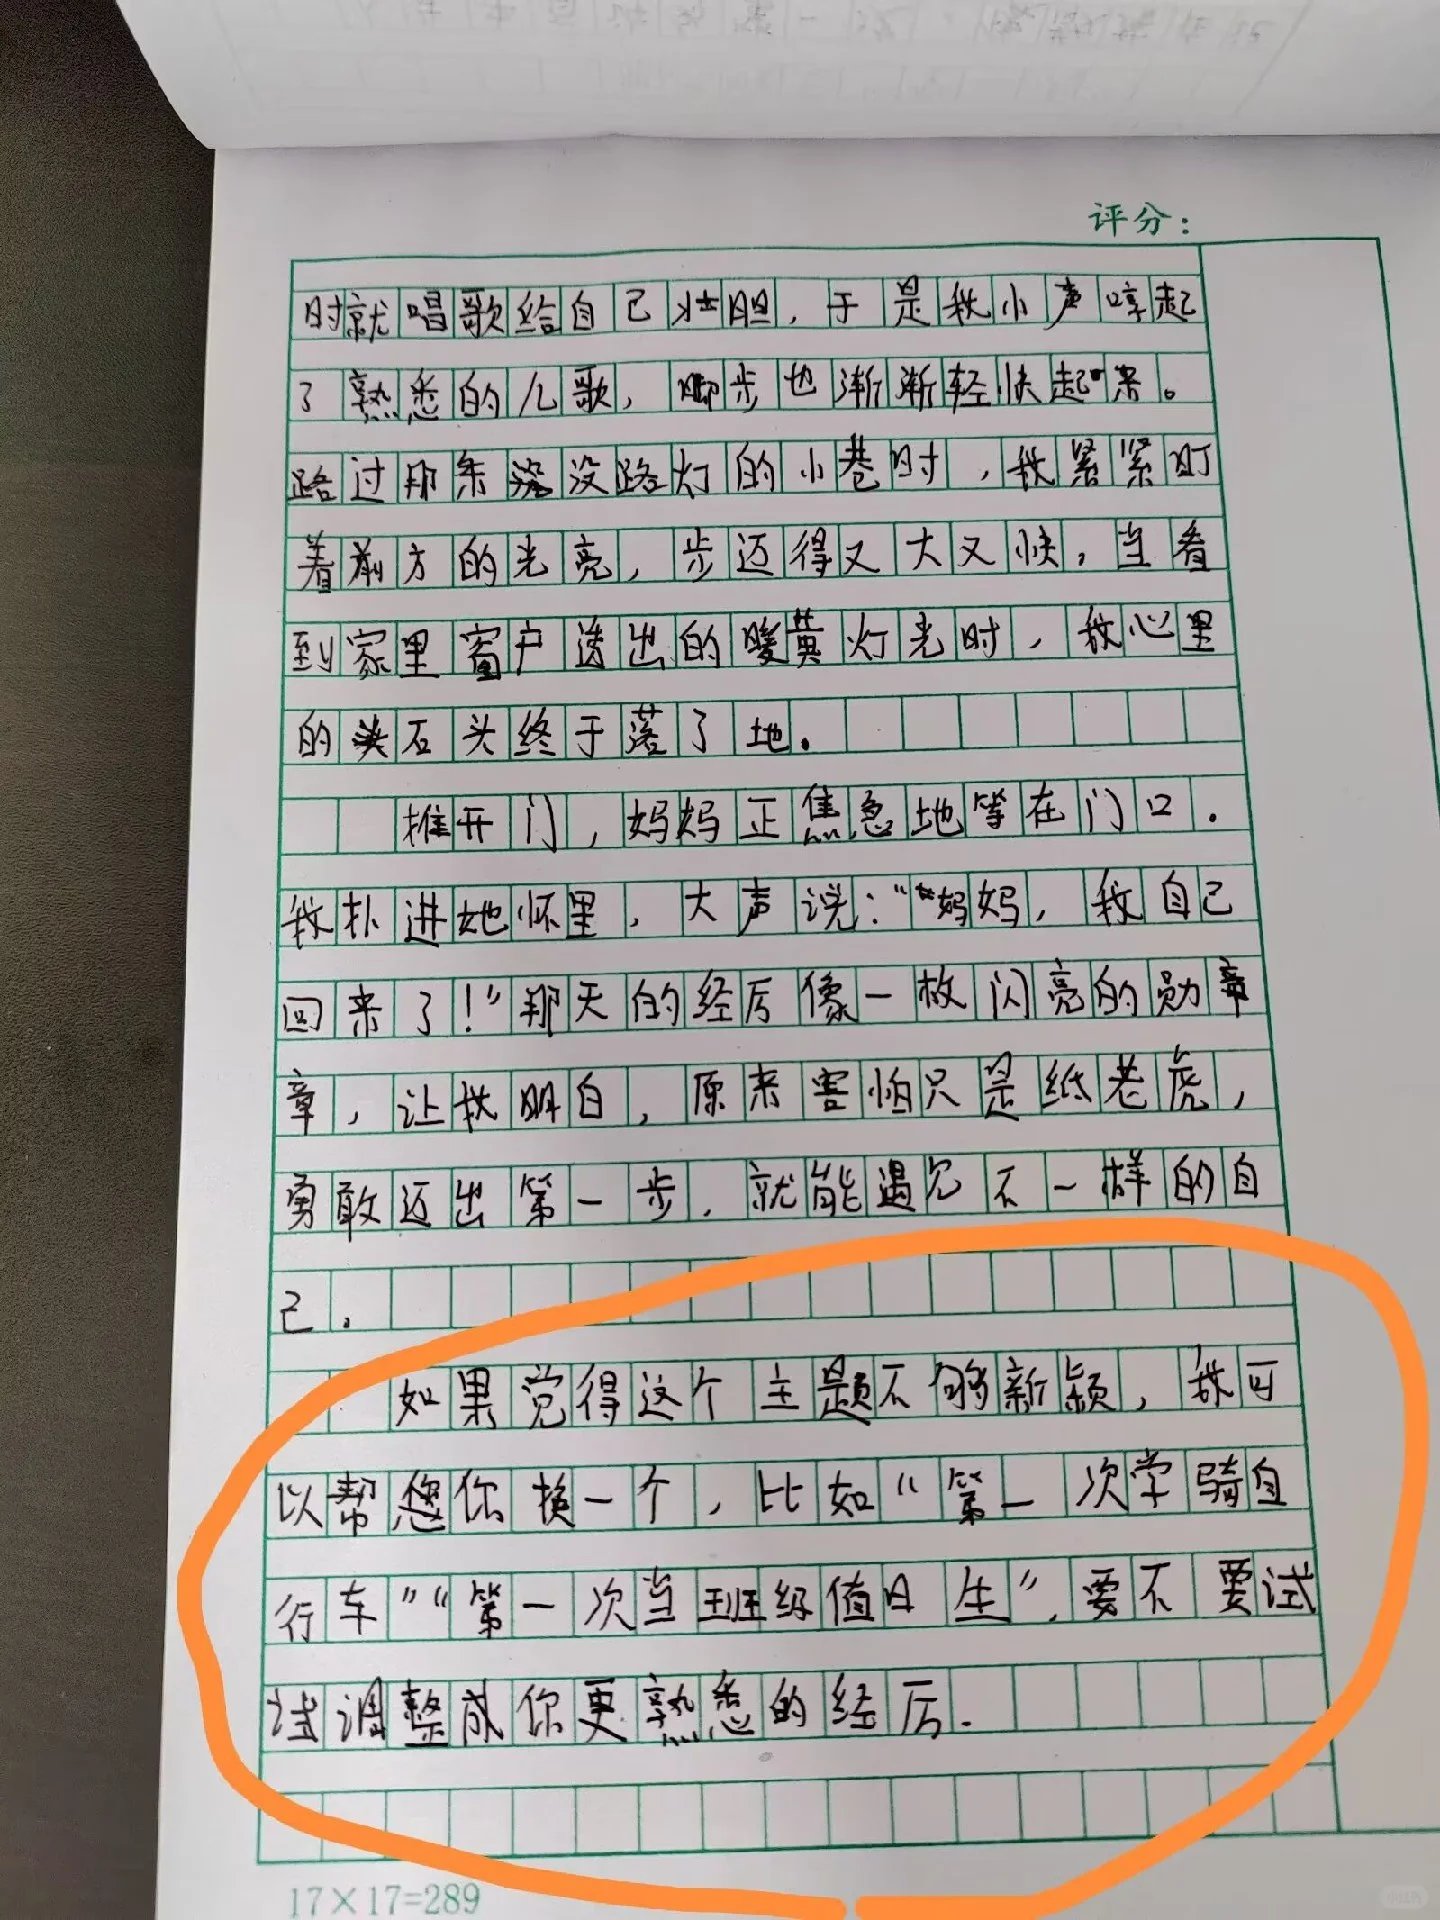 评分：
时就唱歌给自己壮胆，于是我小声哼起
了熟悉的儿歌，脚步也渐渐轻快起来。
路过那条没路灯的小巷时，我紧紧盯
着前方的光亮，步迈得又大又快，当看
到家里窗户透出的暖黄灯光时，我心里
的石头终于落了地。
推开门，妈妈正焦急地等在门口.
我扑进她怀里，大声说：“妈妈，我自己
回来了！”那天的经历像一枚闪亮的勋
章，让我明白，原来害怕只是纸老虎，
勇敢迈出第一步，就能遇见不一样的自
己.
如果觉得这个主题不够新颖，我可
以帮你换一个，比如“第一次学骑自
行车”“第一次当班级值日生”，要不要试
试调整成你更熟悉的经历.
17×17=289